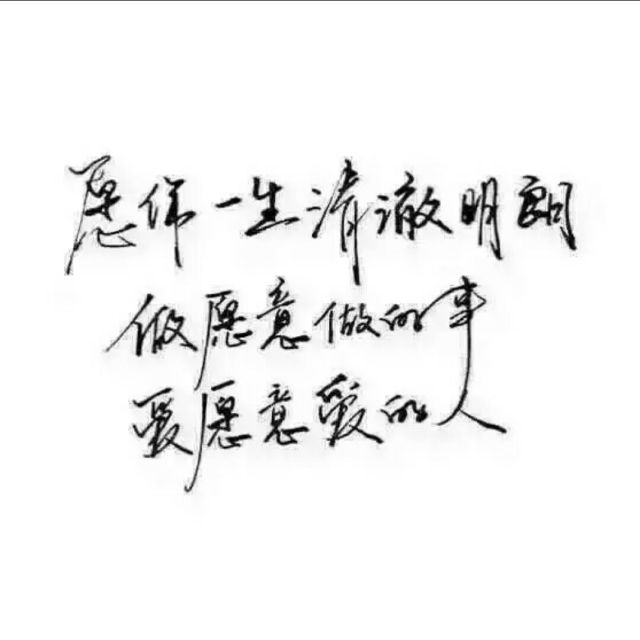 愿你一生清澈明朗
做愿意做的事
爱愿意爱的人